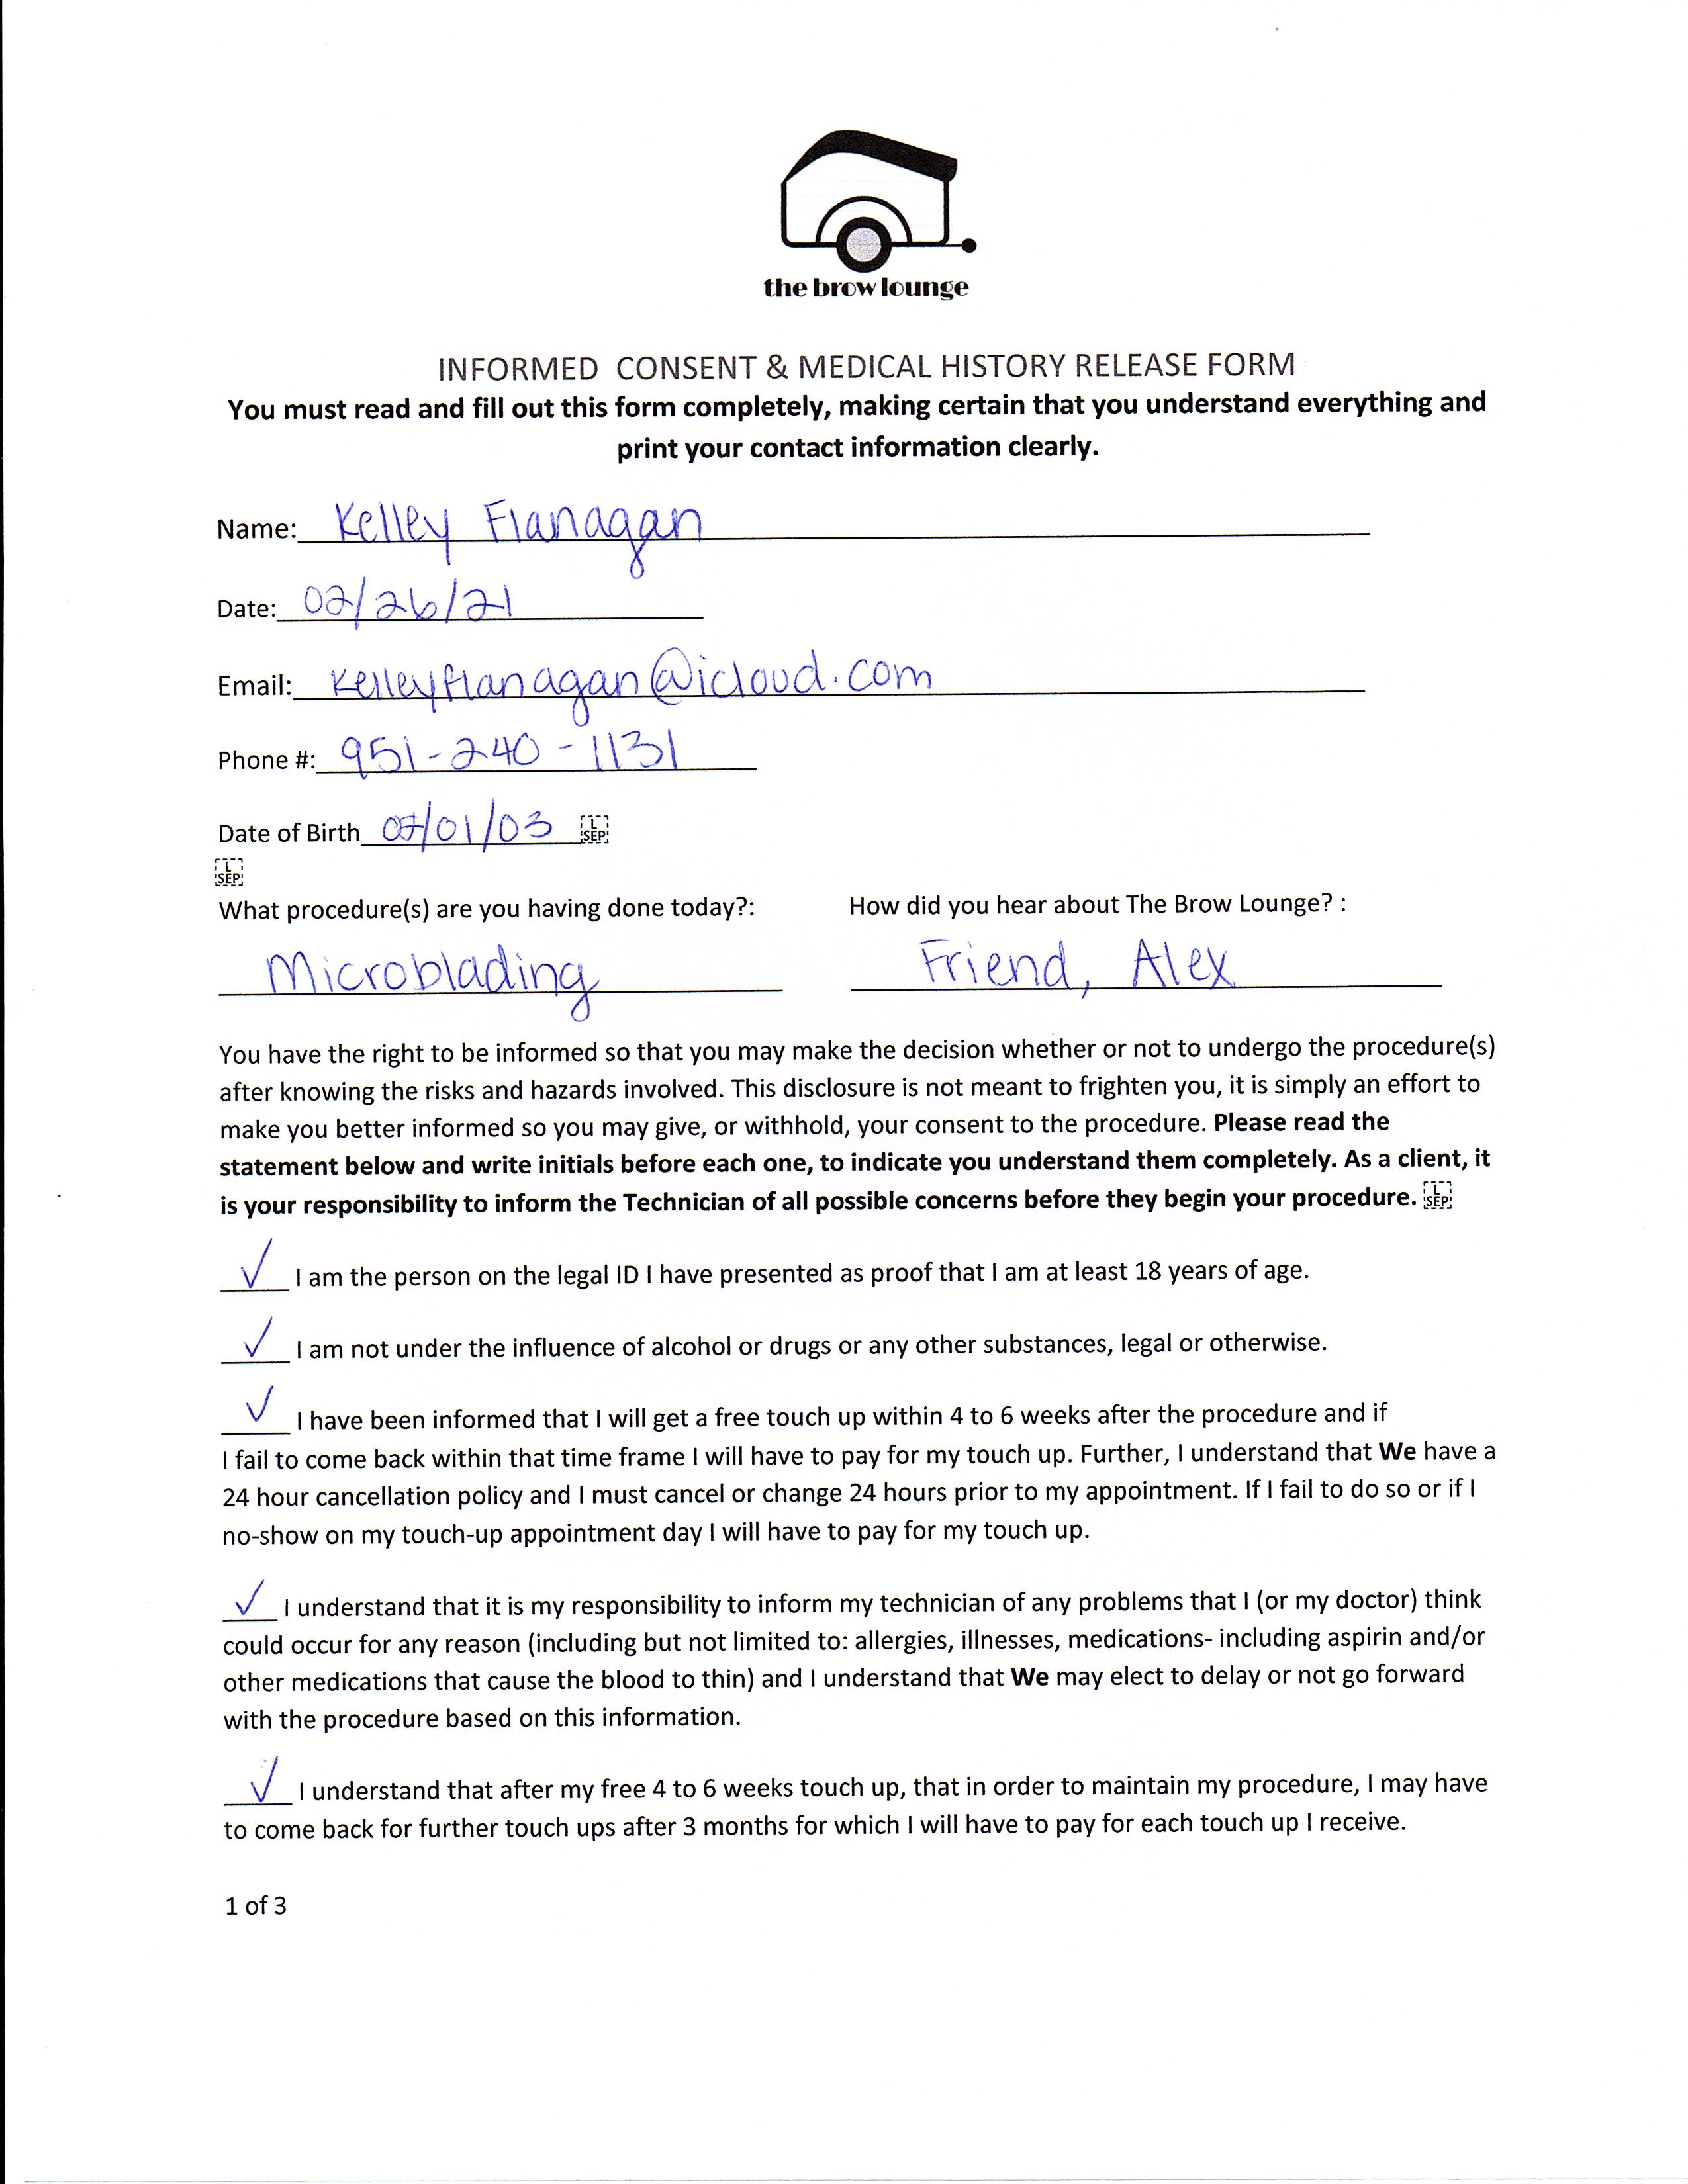 the brow lounge
INFORMED CONSENT & MEDICAL HISTORY RELEASE FORM
You must read and fill out this form completely, making certain that you understand everything and
print your contact information clearly.
Name: Kelley Flanagan
Date: 02/26/21
Email: kelleyflanagan@icloud.com
Phone #: 951-240-1131
Date of Birth /01/03 L SEP
L SEP
What procedure(s) are you having done today?: How did you hear about The Brow Lounge? :
Microblading Friend, Alex
You have the right to be informed so that you may make the decision whether or not to undergo the procedure(s)
after knowing the risks and hazards involved. This disclosure is not meant to frighten you, it is simply an effort to
make you better informed so you may give, or withhold, your consent to the procedure. Please read the
statement below and write initials before each one, to indicate you understand them completely. As a client, it
is your responsibility to inform the Technician of all possible concerns before they begin your procedure. L SEP
✓ I am the person on the legal ID I have presented as proof that I am at least 18 years of age.
✓ I am not under the influence of alcohol or drugs or any other substances, legal or otherwise.
✓ I have been informed that I will get a free touch up within 4 to 6 weeks after the procedure and if
I fail to come back within that time frame I will have to pay for my touch up. Further, I understand that We have a
24 hour cancellation policy and I must cancel or change 24 hours prior to my appointment. If I fail to do so or if I
no-show on my touch-up appointment day I will have to pay for my touch up.
✓ I understand that it is my responsibility to inform my technician of any problems that I (or my doctor) think
could occur for any reason (including but not limited to: allergies, illnesses, medications- including aspirin and/or
other medications that cause the blood to thin) and I understand that We may elect to delay or not go forward
with the procedure based on this information.
✓ I understand that after my free 4 to 6 weeks touch up, that in order to maintain my procedure, I may have
to come back for further touch ups after 3 months for which I will have to pay for each touch up I receive.
1 of 3